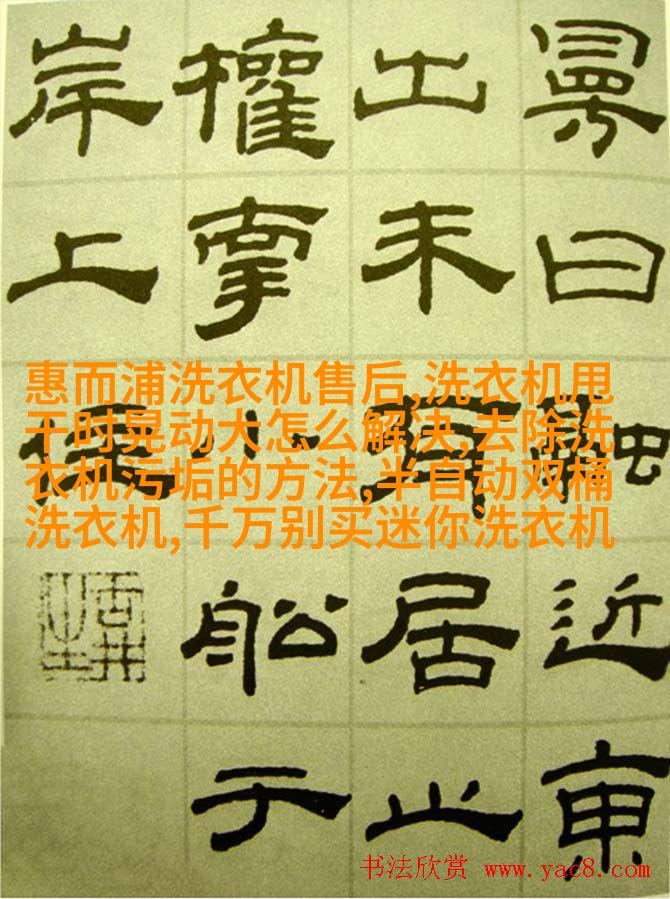 曼曰融近東
出未有居止
權牽小船于
岸上住
惠而浦洗衣机售后,洗衣机甩
干时晃动大怎么解决,去除洗
衣机污垢的方法,半自动双桶
洗衣机,千万别买迷你洗衣机
书法欣赏 www.yac8.com